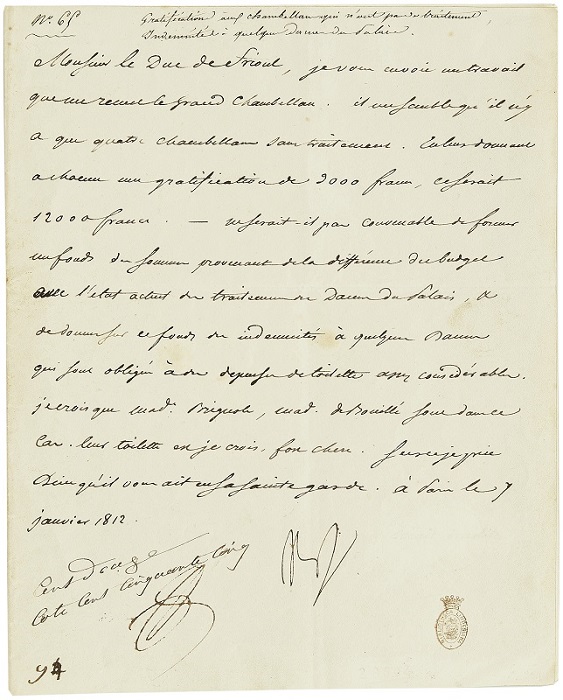 Nº 65
Gratification aux chambellans qui n'ont pas de traitement,
Indemnités à quelques Dames du Palais.
Monsieur le Duc de Frioul, je vous envoie un travail
que me remet le grand Chambellan. il me semble qu'il n'y
a que quatre chambellans sans traitement. En leur donnant
a chacun une gratification de 3000 francs, ce serait
12000 francs. — ne serait-il pas convenable de former
un fonds des sommes provenant de la différence du budget
avec l'état actuel du traitement des Dames du Palais, &
de donner sur ce fonds des indemnités à quelques Dames
qui sont obligées à des dépenses de toilette assez considérables.
je crois que mad. Brignole, mad. de Bouillé sont dans ce
Cas. leur toilette est, je crois, fort chere. sur ce je prie
Dieu qu'il vous ait en sa sainte garde. à Paris le 7
janvier 1812.
Cent douze
Cote Cent Cinquante Cinq
94